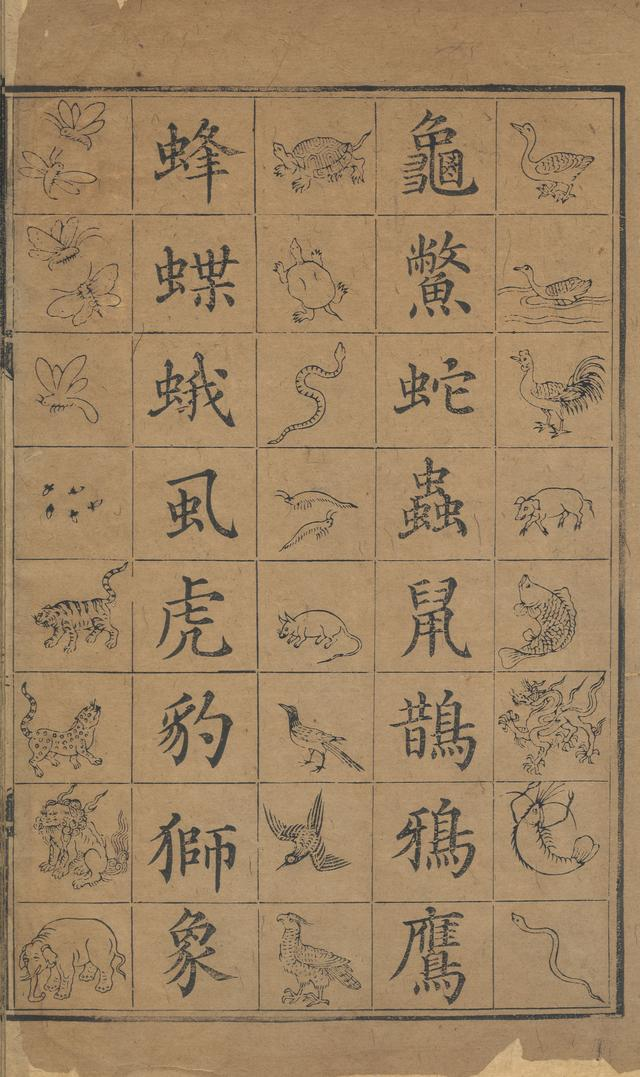 龜鼈蛇蟲鼠鵲鴉鷹
蜂蝶蛾虱虎豹獅象